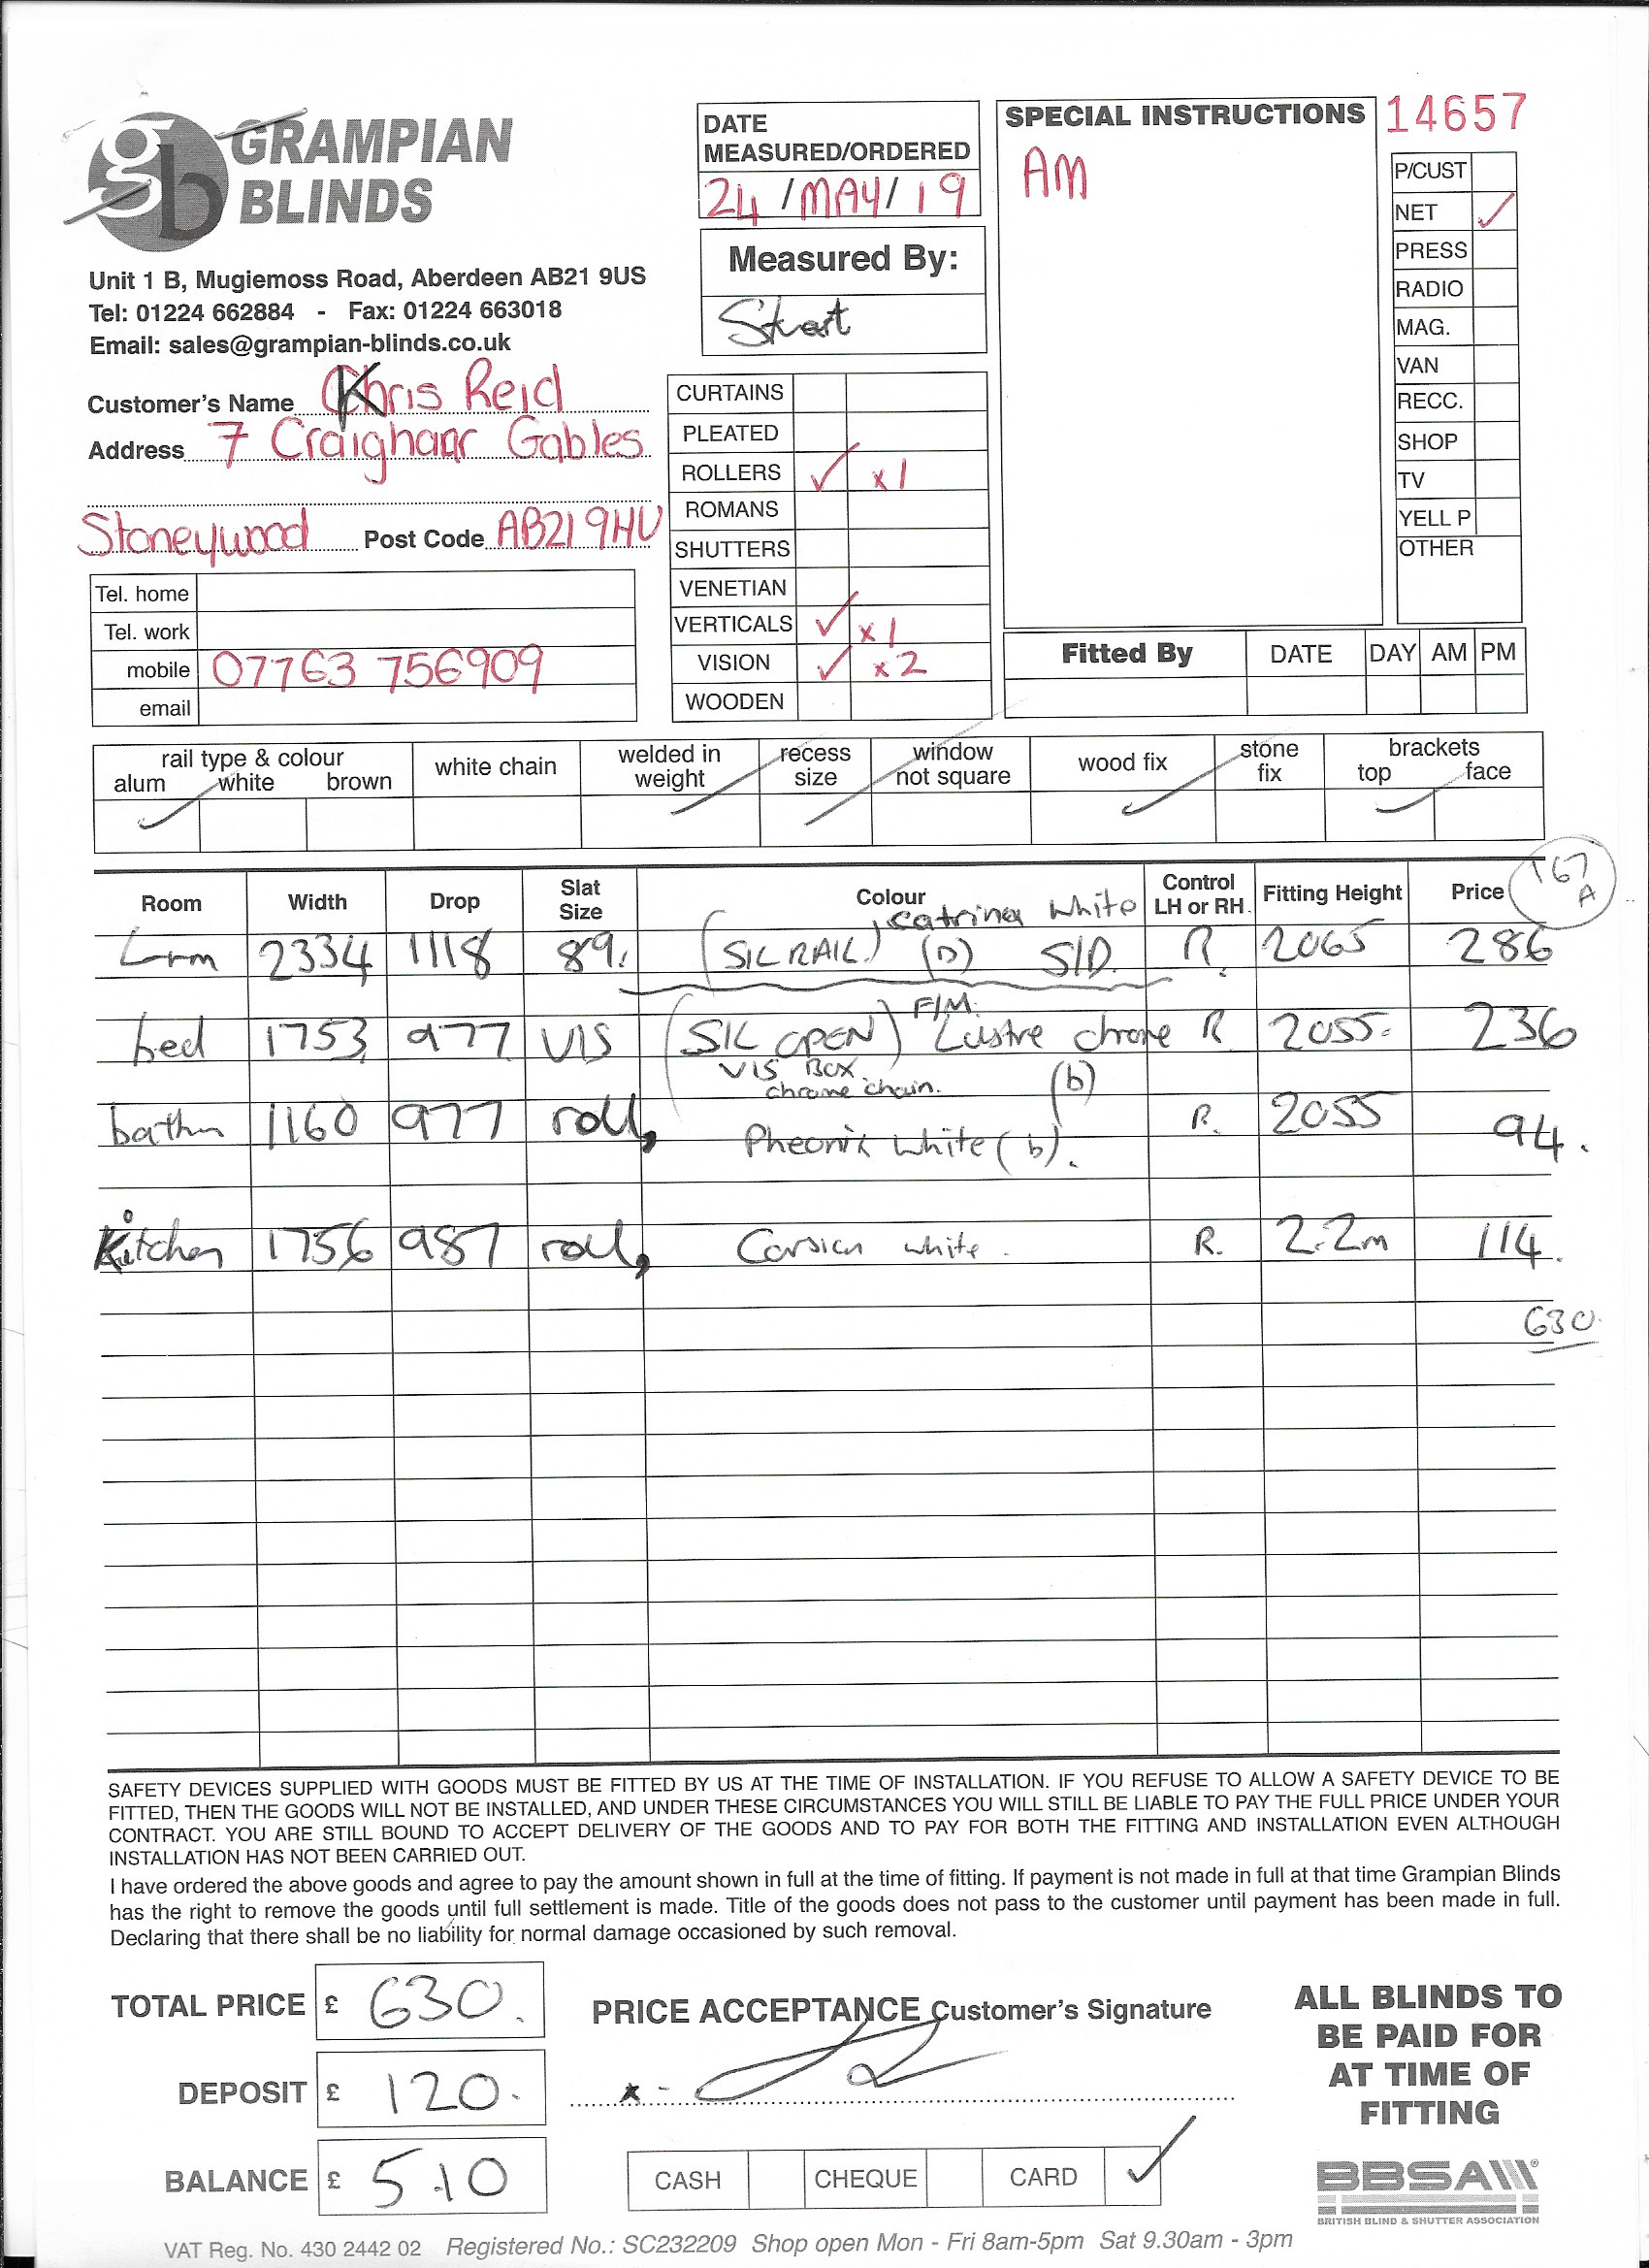 gb GRAMPIAN
BLINDS
Unit 1 B, Mugiemoss Road, Aberdeen AB21 9US
Tel: 01224 662884 - Fax: 01224 663018
Email: sales@grampian-blinds.co.uk
Customer's Name Khris Reid
Address 7 Craighaar Gables
Stoneywood Post Code AB21 9HU
Tel. home
Tel. work
mobile 07763 756909
email
DATE
MEASURED/ORDERED
24/MAY/19
Measured By:
CURTAINS
PLEATED
ROLLERS ✓ x1
ROMANS
SHUTTERS
VENETIAN
VERTICALS ✓ x1
VISION ✓ x2
WOODEN
SPECIAL INSTRUCTIONS
AM
14657
P/CUST
NET ✓
PRESS
RADIO
MAG.
VAN
RECC.
SHOP
TV
YELL P
OTHER
Fitted By DATE DAY AM PM
rail type & colour
alum white brown
white chain
welded in
weight
recess
size
window
not square
wood fix
stone
fix
brackets
top face
T67
A
Room Width Drop Slat Size Colour Control LH or RH Fitting Height Price
Catrina White
L-rm 2334 1118 89. (SIL RAIL) (D) S/D. R. 2065 286
F/M.
bed 1753 977 VIS (SIL OPEN) Lustre chrome R 2055. 236
VIS BOX.
chrome chain. (b)
bathm 1160 977 roll, Pheonix White (b). R. 2055 94.
Kitchen 1756 987 roll, Corsica white. R. 2.2m 114.
630.
SAFETY DEVICES SUPPLIED WITH GOODS MUST BE FITTED BY US AT THE TIME OF INSTALLATION. IF YOU REFUSE TO ALLOW A SAFETY DEVICE TO BE
FITTED, THEN THE GOODS WILL NOT BE INSTALLED, AND UNDER THESE CIRCUMSTANCES YOU WILL STILL BE LIABLE TO PAY THE FULL PRICE UNDER YOUR
CONTRACT. YOU ARE STILL BOUND TO ACCEPT DELIVERY OF THE GOODS AND TO PAY FOR BOTH THE FITTING AND INSTALLATION EVEN ALTHOUGH
INSTALLATION HAS NOT BEEN CARRIED OUT.
I have ordered the above goods and agree to pay the amount shown in full at the time of fitting. If payment is not made in full at that time Grampian Blinds
has the right to remove the goods until full settlement is made. Title of the goods does not pass to the customer until payment has been made in full.
Declaring that there shall be no liability for normal damage occasioned by such removal.
TOTAL PRICE £ 630.
DEPOSIT £ 120.
BALANCE £ 510
PRICE ACCEPTANCE Customer's Signature
CASH CHEQUE CARD ✓
ALL BLINDS TO
BE PAID FOR
AT TIME OF
FITTING
BBSA
BRITISH BLIND & SHUTTER ASSOCIATION
VAT Reg. No. 430 2442 02 Registered No.: SC232209 Shop open Mon - Fri 8am-5pm Sat 9.30am - 3pm